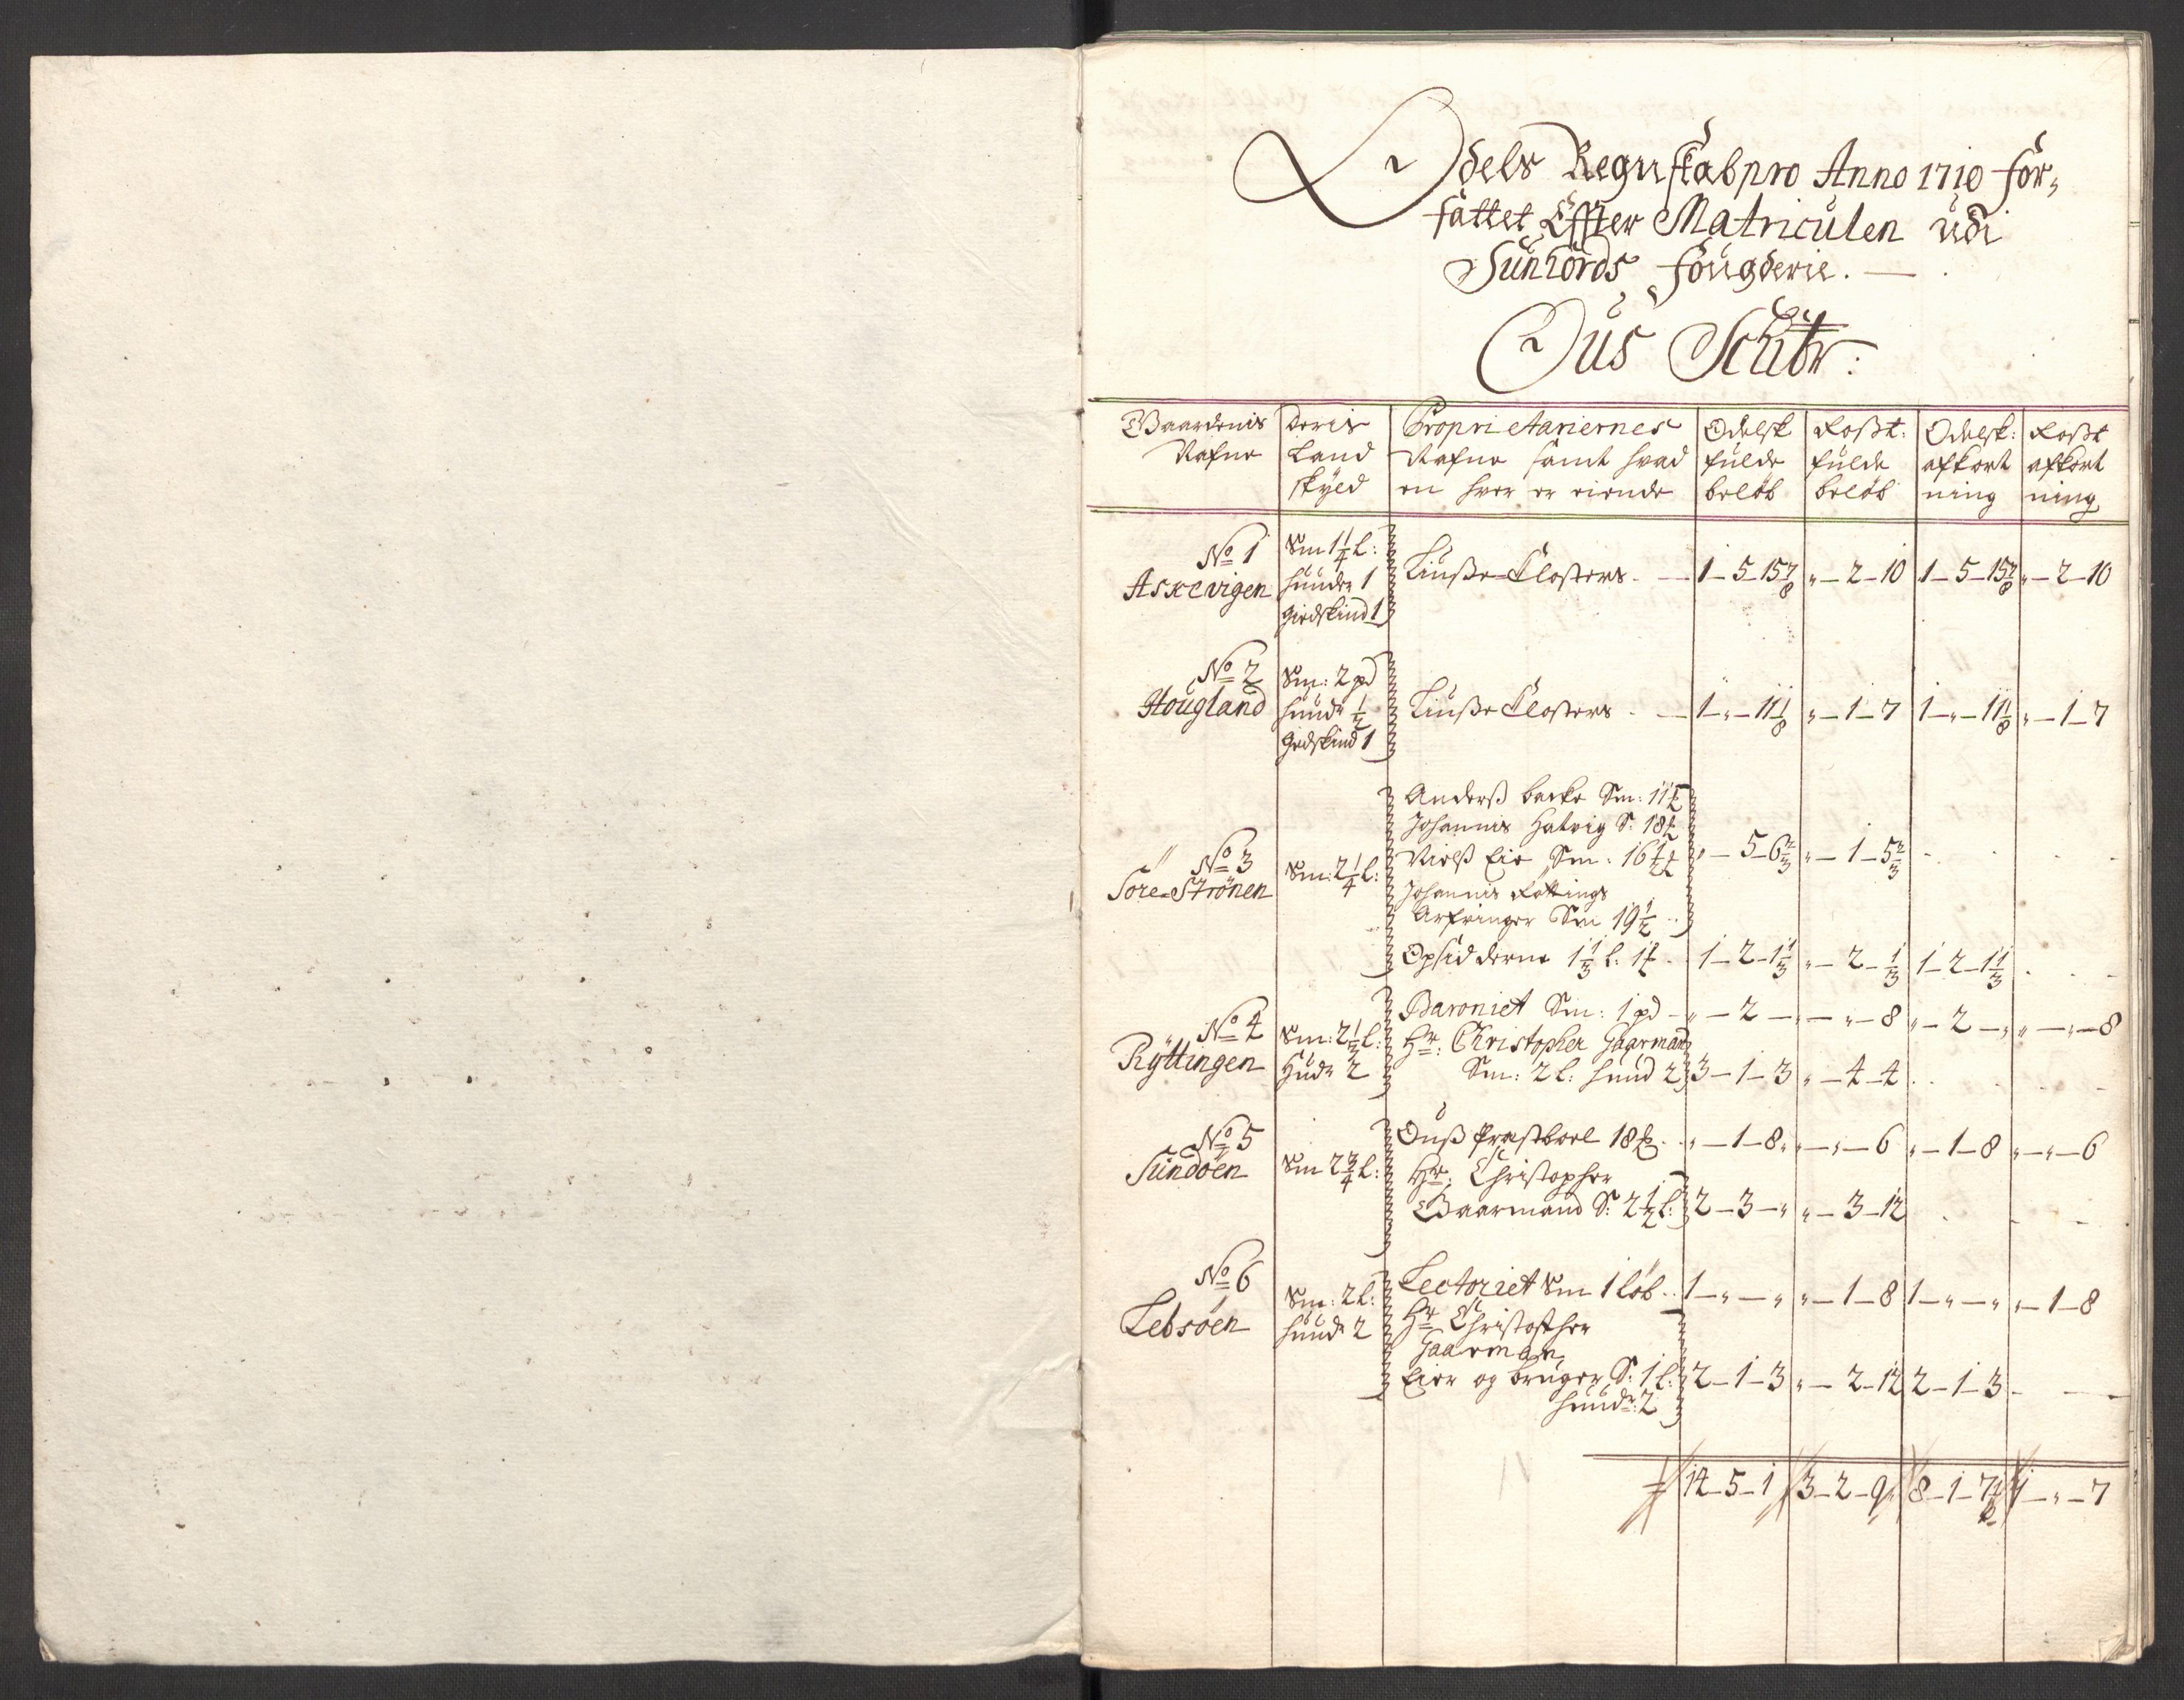 Odels Regnskab pro Anno 1710 for-
fattet Effter Matriculen udi
Sunhords fougderie.
Ous Schibr:
Gaardenis Nafne | Deris Land skyld | Proprietariernes Nafne samt hvad en hver er eiende | Odelsk fulde beløb | Roßt: fulde beløb | Odelsk: afkort ning | Roßt afkort ning
No 1 Askevigen | Sm 1 1/4 l: huuder 1 giedskind 1 | Liuße Closters | 1-5-15 7/8 | "-2-10 | 1-5-15 7/8 | "-2-10
No 2 Hougland | Sm: 2 pd hude 1/2 gedskind 1 | Liuße Closters | 1-"-11 1/8 | "-1-7 | 1-"-11 1/8 | "-1-7
No 3 Søre-Strønen | Sm: 2 1/4 l:
Anderß backe Sm: 11
Johannis Hatvig S: 18
Nielß Eie Sm: 16 1/2 | "-5-6 2/3 | "-1-5 2/3
Johannis Røttings
Arfvinger Sm 19 1/2
Opsidderne 1 1/3 l: 1 | 1-2-1 1/3 | "-2-1/3 | 1-2-1 1/3
No 4 Rÿttingen | Sm: 2 1/3 l: Hude 2
Baroniet Sm: 1 pd | "-2-" | "-"-8 | "-2-" | "-"-8
Hr: Christopher Gaarmand
Sm: 2 l: huud 2 | 3-1-3 | "-4-4
No 5 Sundøen | Sm 2 3/4 l:
Ouß Præstboel 18 | "-1-8 | "-"-6 | "-1-8 | "-"-6
Hr: Christopher
Gaarmand S: 2 1/2 l: | 2-3-" | "-3-12
No 6 Lebsøen | Sm: 2 l: huude 2
Lectoriet Sm 1 løb | 1-"-" | "-1-8 | 1-"-" | "-1-8
Hr Christopher
Gaarman
Eier og bruger S: 1 l: | 2-1-3 | "-2-12 | 2-1-3
hude: 2
14-5-1 | 3-2-9 | 8-1-7 | 1-"-7